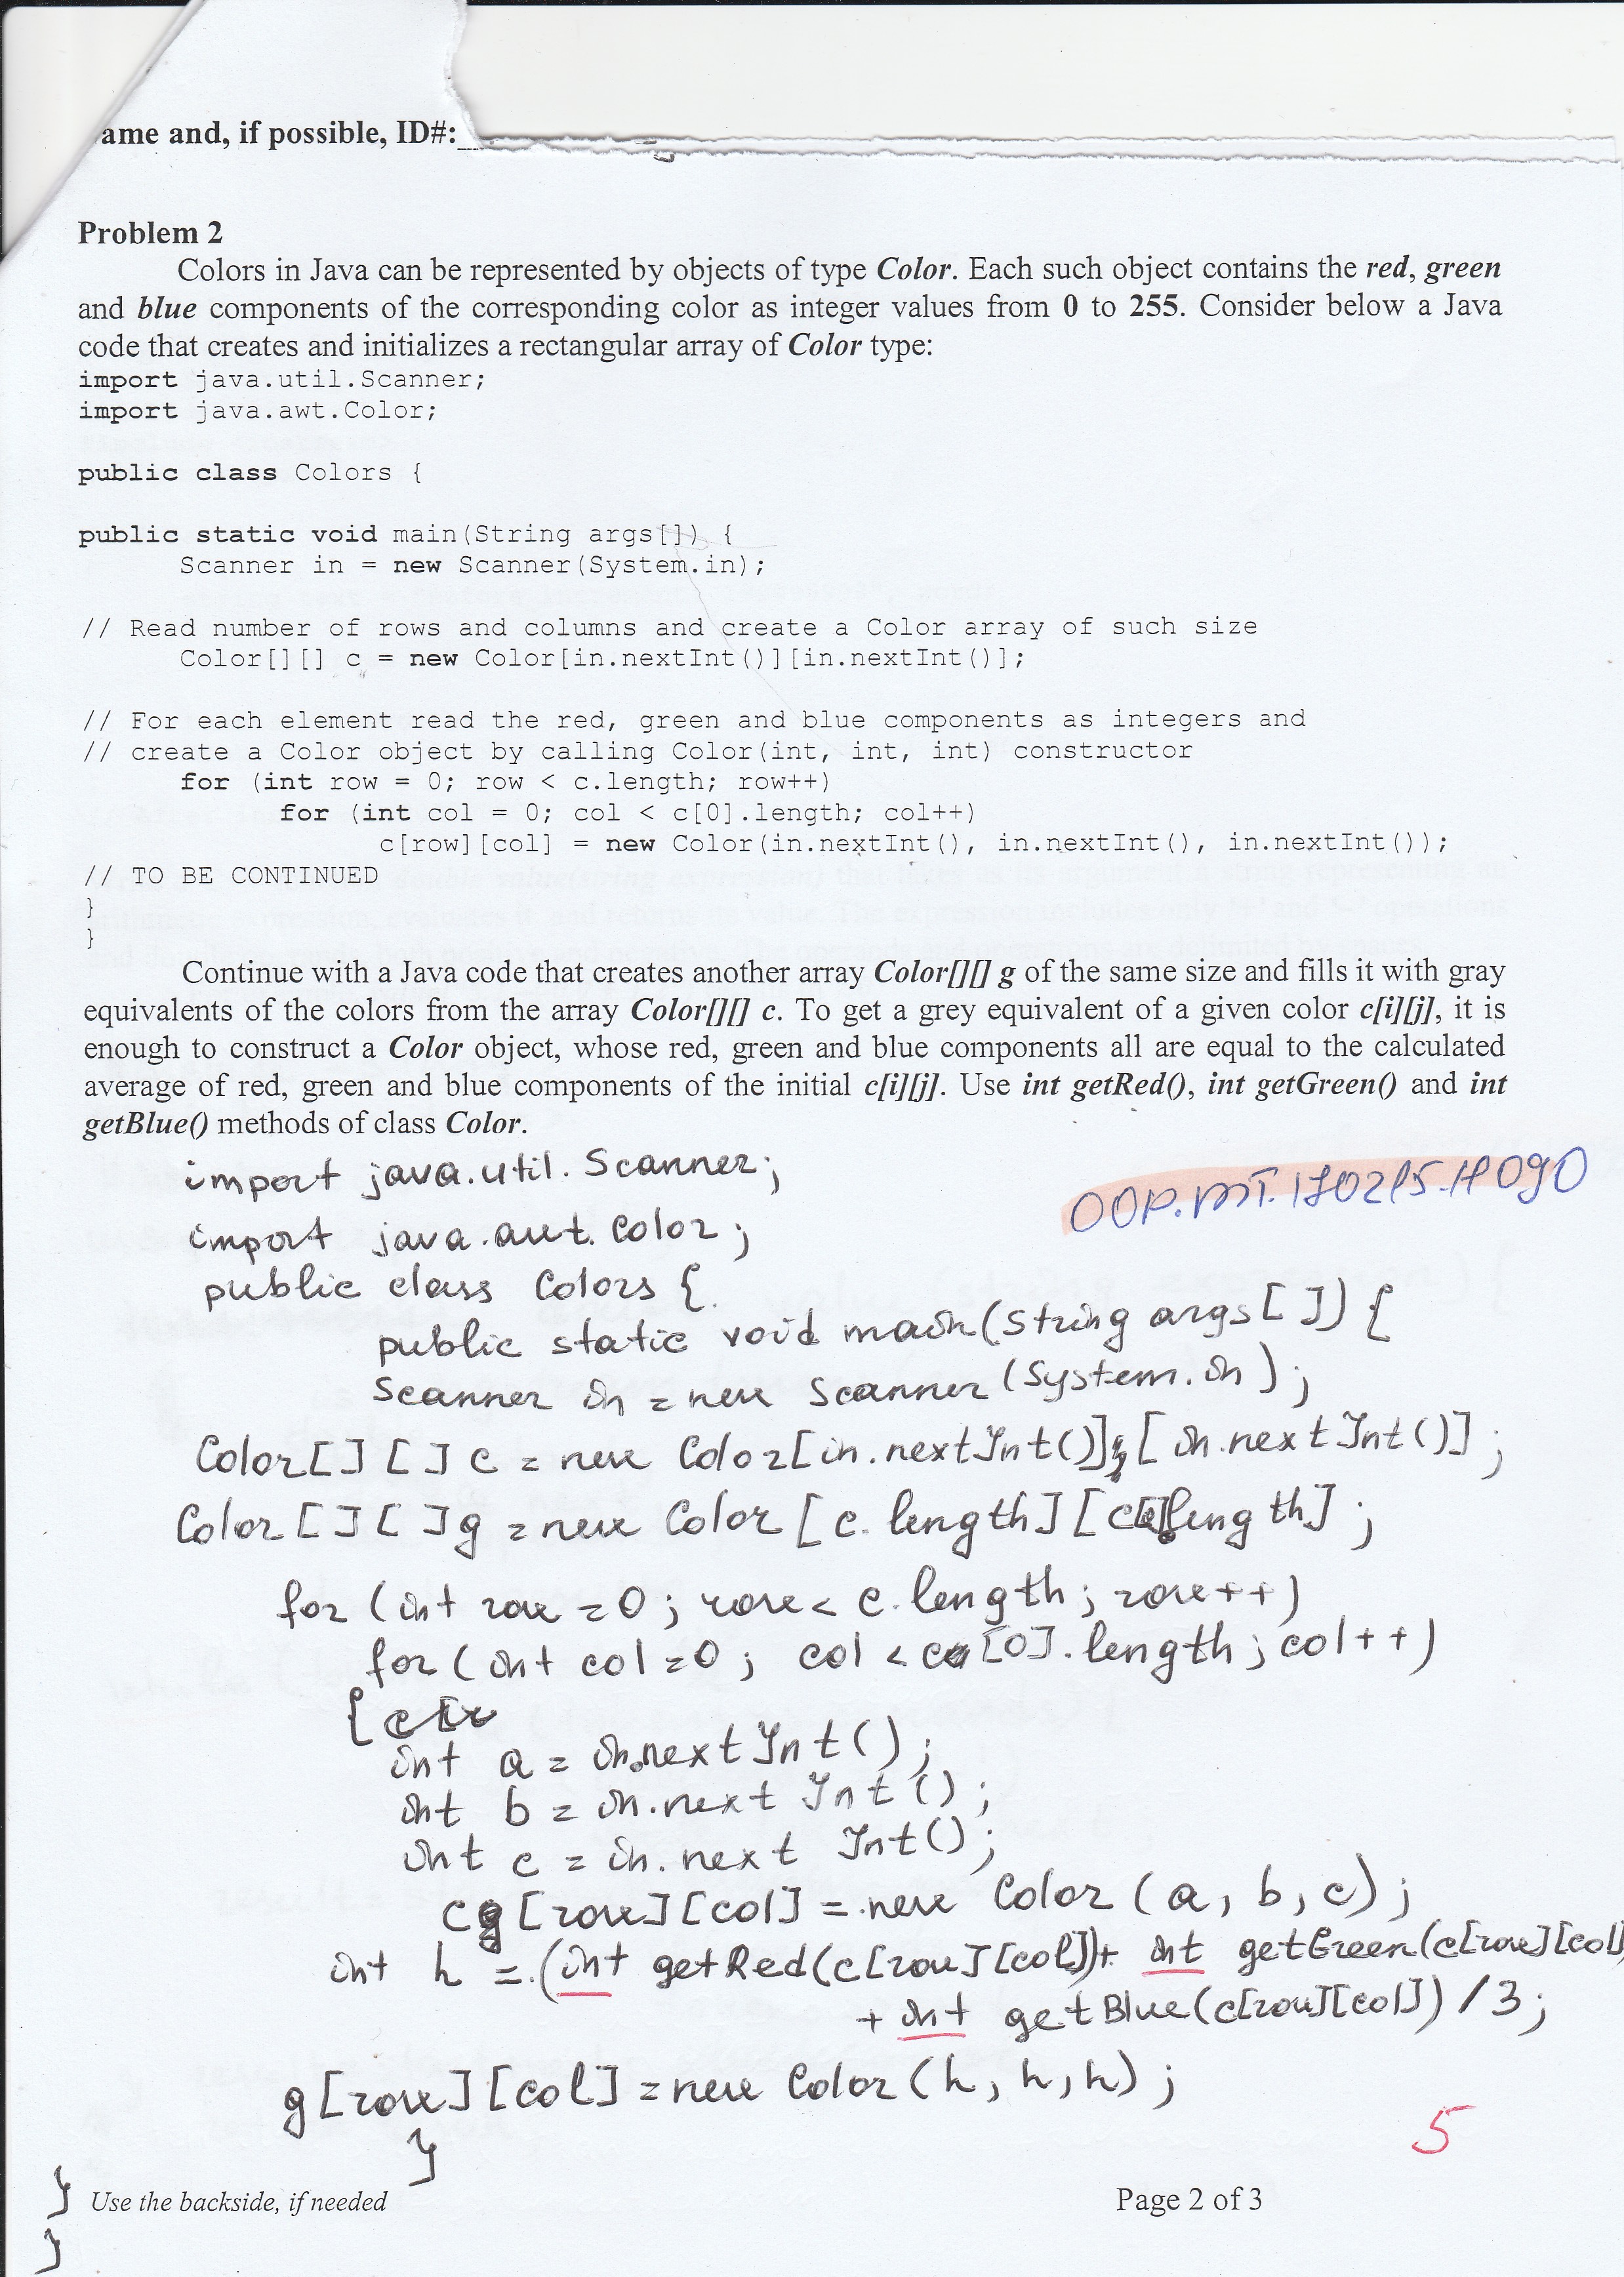 ame and, if possible, ID#:
Problem 2
Colors in Java can be represented by objects of type Color. Each such object contains the red, green
and blue components of the corresponding color as integer values from 0 to 255. Consider below a Java
code that creates and initializes a rectangular array of Color type:
import java.util.Scanner;
import java.awt.Color;
public class Colors {
public static void main(String args[]) {
Scanner in = new Scanner(System.in);
// Read number of rows and columns and create a Color array of such size
Color[][] c = new Color[in.nextInt()][in.nextInt()];
// For each element read the red, green and blue components as integers and
// create a Color object by calling Color(int, int, int) constructor
for (int row = 0; row < c.length; row++)
for (int col = 0; col < c[0].length; col++)
c[row][col] = new Color(in.nextInt(), in.nextInt(), in.nextInt());
// TO BE CONTINUED
}
}
Continue with a Java code that creates another array Color[][] g of the same size and fills it with gray
equivalents of the colors from the array Color[][] c. To get a grey equivalent of a given color c[i][j], it is
enough to construct a Color object, whose red, green and blue components all are equal to the calculated
average of red, green and blue components of the initial c[i][j]. Use int getRed(), int getGreen() and int
getBlue() methods of class Color.
import java.util.Scanner;
OOP.MT.170215.H090
import java.awt.Color;
public class Colors {
public static void main(String args[]) {
Scanner in = new Scanner(System.in);
Color[][] c = new Color[in.nextInt()][in.nextInt()];
Color[][]g = new Color[c.length][c[0].length];
for (int row = 0; row < c.length; row++)
for (int col = 0; col < c[0].length; col++)
{
int a = in.nextInt();
int b = in.nextInt();
int c = in.nextInt();
c[row][col] = new Color(a, b, c);
int h = (int getRed(c[row][col])+ int getGreen(c[row][col]
+ int getBlue(c[row][col]) /3;
g[row][col] = new Color(h, h, h);
}
5
} Use the backside, if needed
Page 2 of 3
}